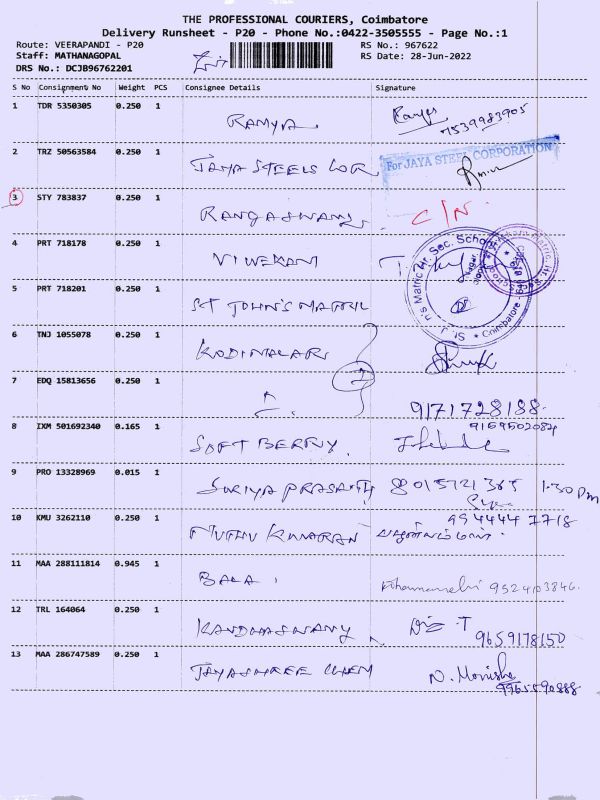 THE PROFESSIONAL COURIERS, Coimbatore
Delivery Runsheet - P20 - Phone No.:0422-3505555 - Page No.:1
Route: VEERAPANDI - P20 RS No.: 967622
Staff: MATHANAGOPAL RS Date: 28-Jun-2022
DRS No.: DCJB96762201
S No Consignment No Weight PCS Consignee Details Signature
1 TDR 5350305 0.250 1 RAMYA
7539983905
2 TRZ 50563584 0.250 1 JAYA STEELS COR
For JAYA STEEL CORPORATION
3 STY 783837 0.250 1 RANGASWAMY C/N
4 PRT 718178 0.250 1 VIVEKANI
5 PRT 718201 0.250 1 ST JOHN'S MATRIC
St. J 's Matric Hr. Sec. School
Coimbatore
6 TNJ 1055078 0.250 1 KODIMALAR
2
7 EDQ 15813656 0.250 1 9171728188
8 IXM 501692340 0.165 1 SOFT BERRY
9159502084
9 PRO 13328969 0.015 1 SURIYA PRASATH 8015721365 1.30 Pm
10 KMU 3262110 0.250 1 MUTHU KUMARAN
994444 7718
11 MAA 288111814 0.945 1 BALA 9524103846
12 TRL 164064 0.250 1 KANDHASWAMY
9659178150
13 MAA 286747589 0.250 1 JAYASHREE CHEM N. Monisha
9965590888